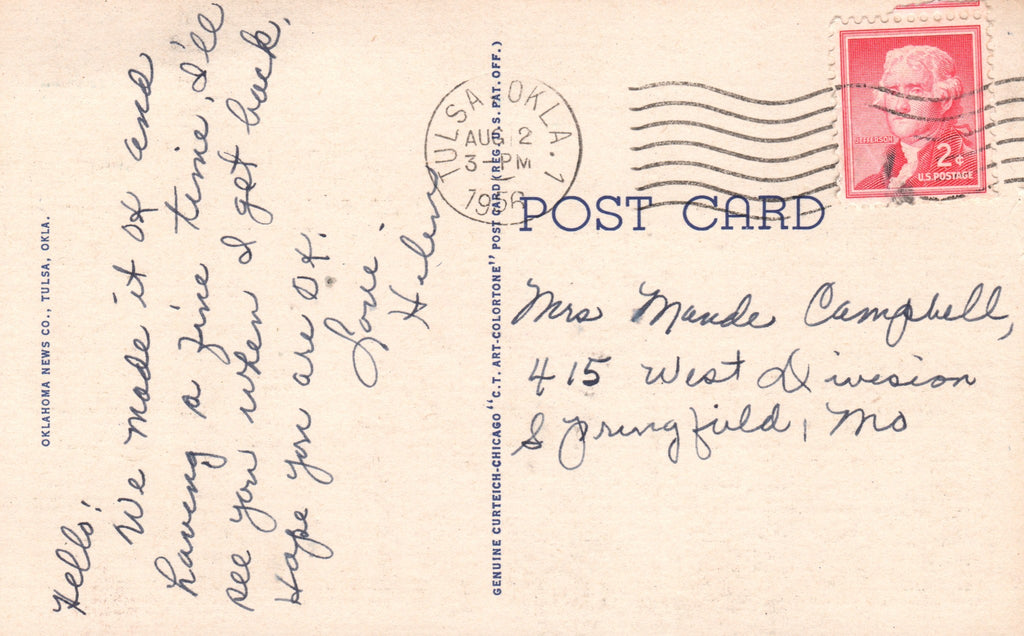 Hello!
We made it OK and
having a fine time, I'll
see you when I get back.
Hope you are OK.
Love
Helen
OKLAHOMA NEWS CO., TULSA, OKLA.
GENUINE CURTEICH-CHICAGO "C.T. ART-COLORTONE" POST CARD (REG. U.S. PAT. OFF.)
TULSA OKLA. 1
AUG 12
3-PM
1956
JEFFERSON
2¢
U.S. POSTAGE
POST CARD
Mrs Maude Campbell,
415 West Division
Springfield, Mo